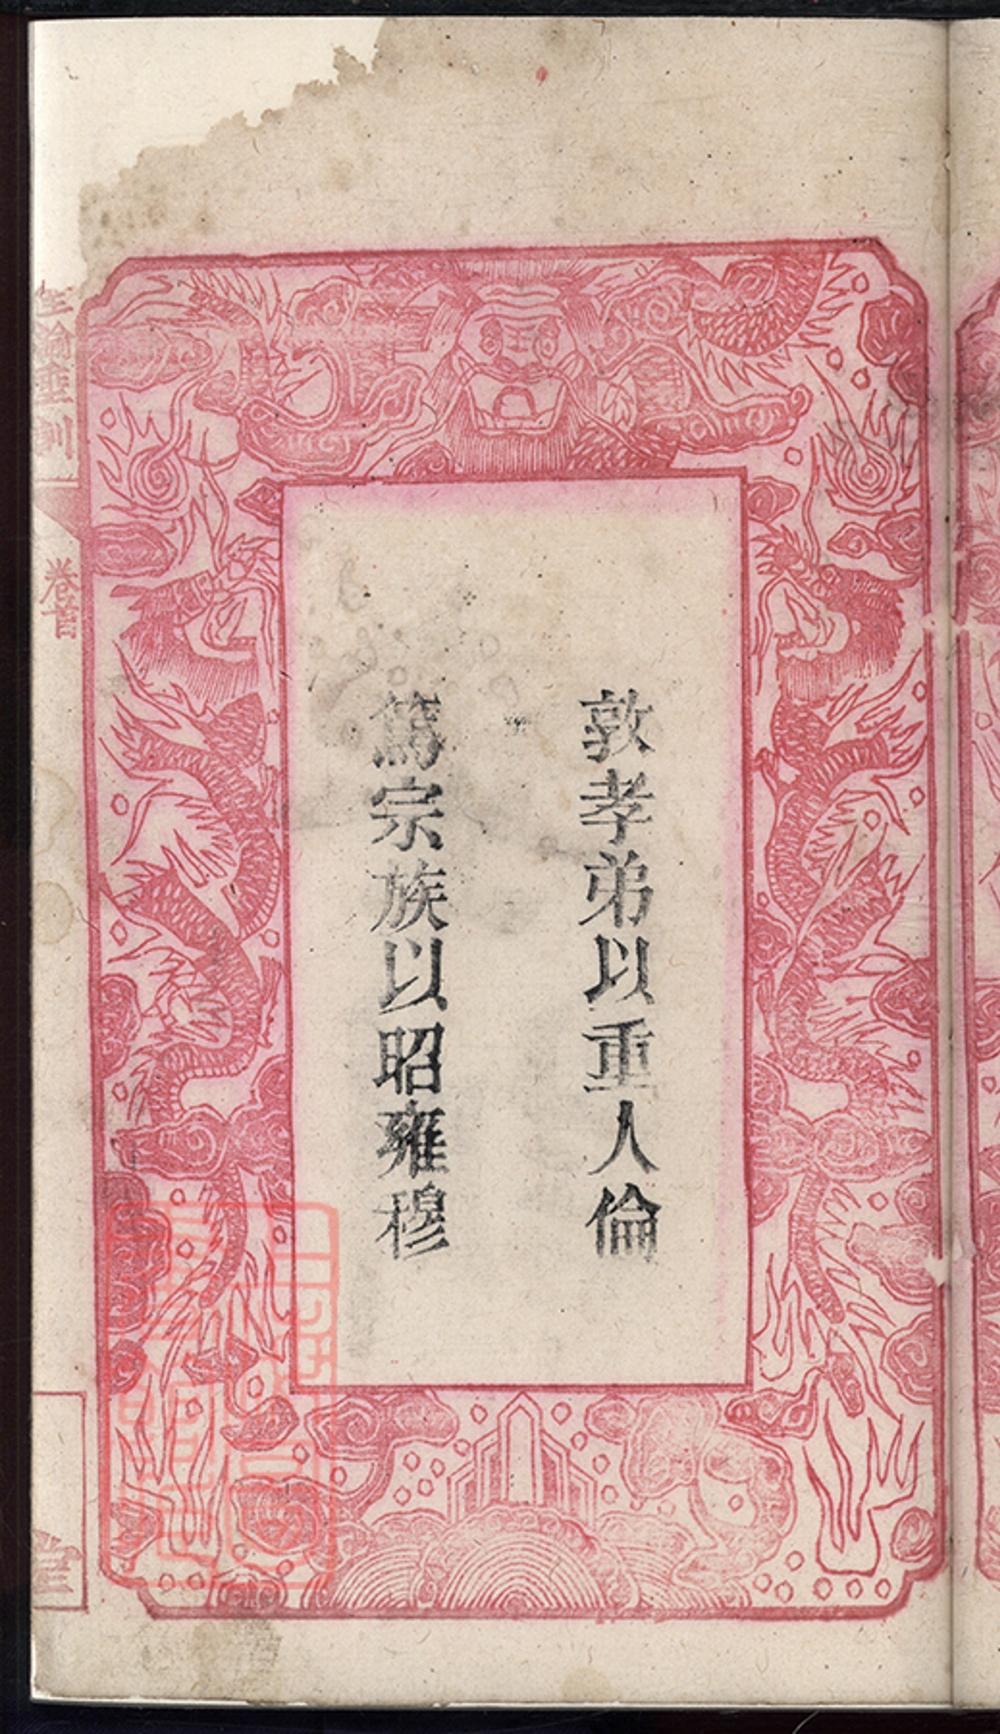 敦孝弟以重人倫
篤宗族以昭雍穆
聖諭垂訓
卷首